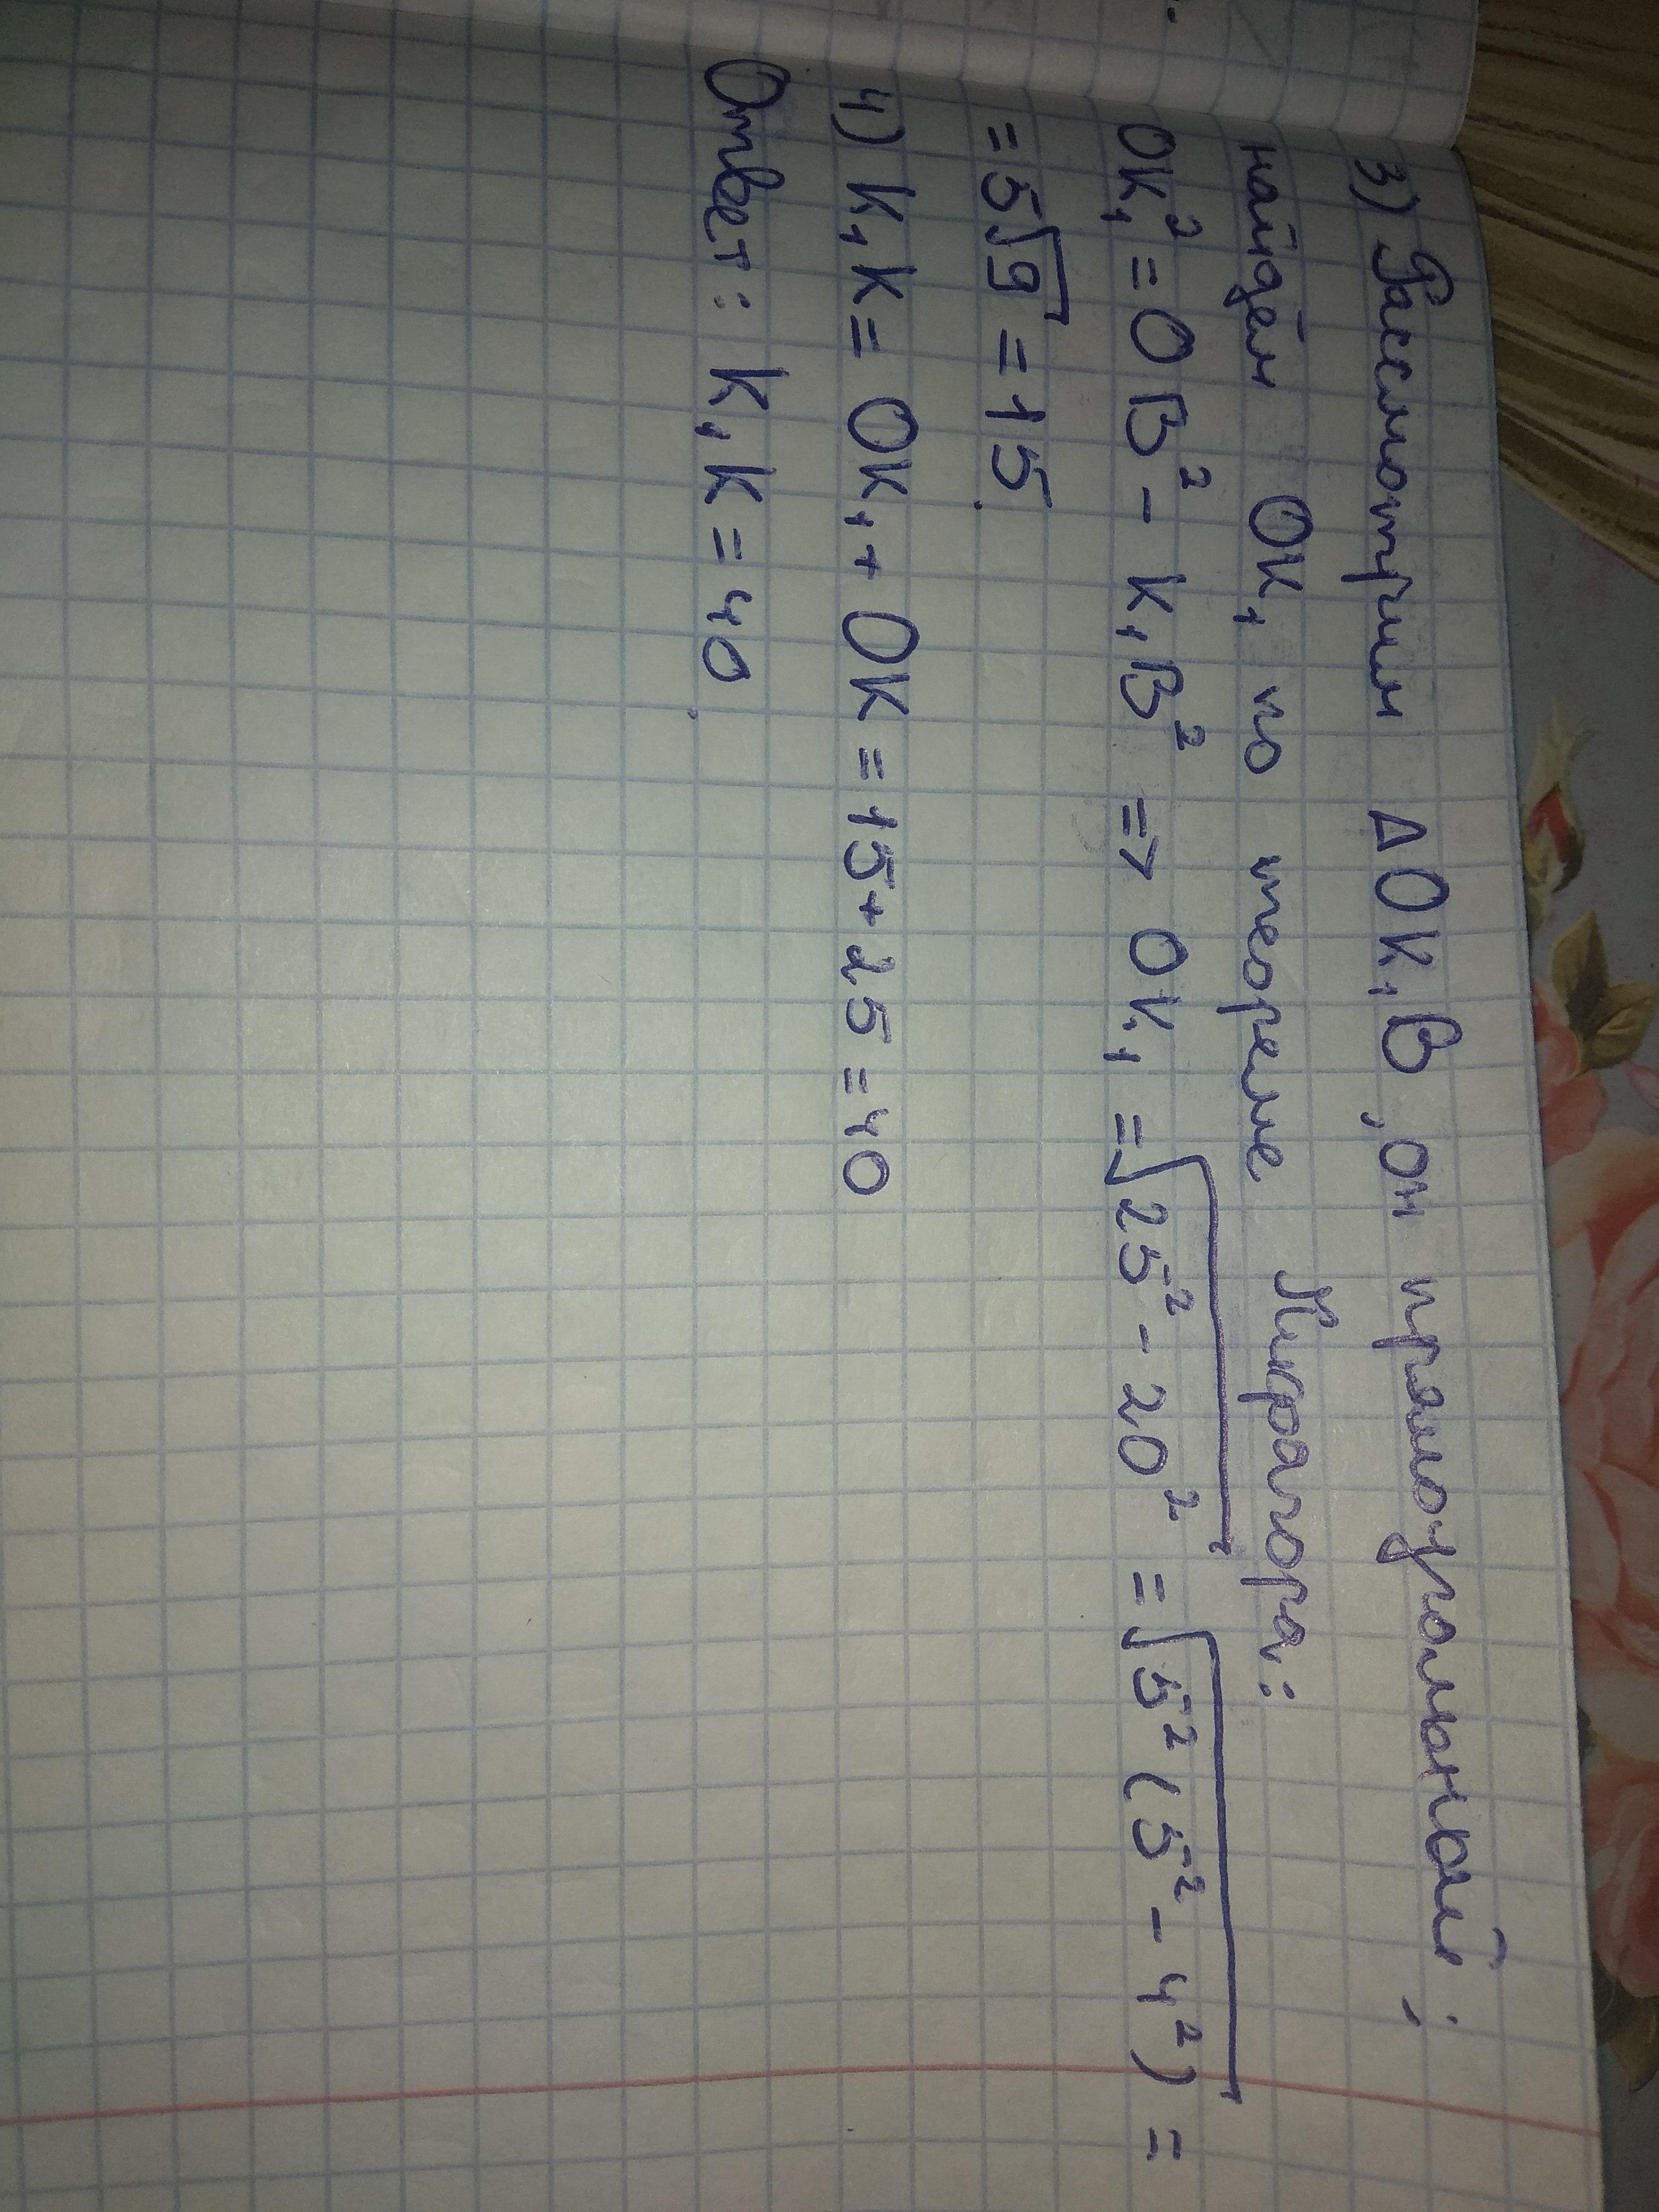 3) Рассмотрим ΔOK₁B, он прямоугольный;
найдём OK₁ по теореме Пифагора:
OK₁² = OB² - K₁B² => OK₁ = √25² - 20² = √5² (5² - 4²) =
= 5√9 = 15.
4) K₁K = OK₁ + OK = 15 + 25 = 40
Ответ: K₁K = 40